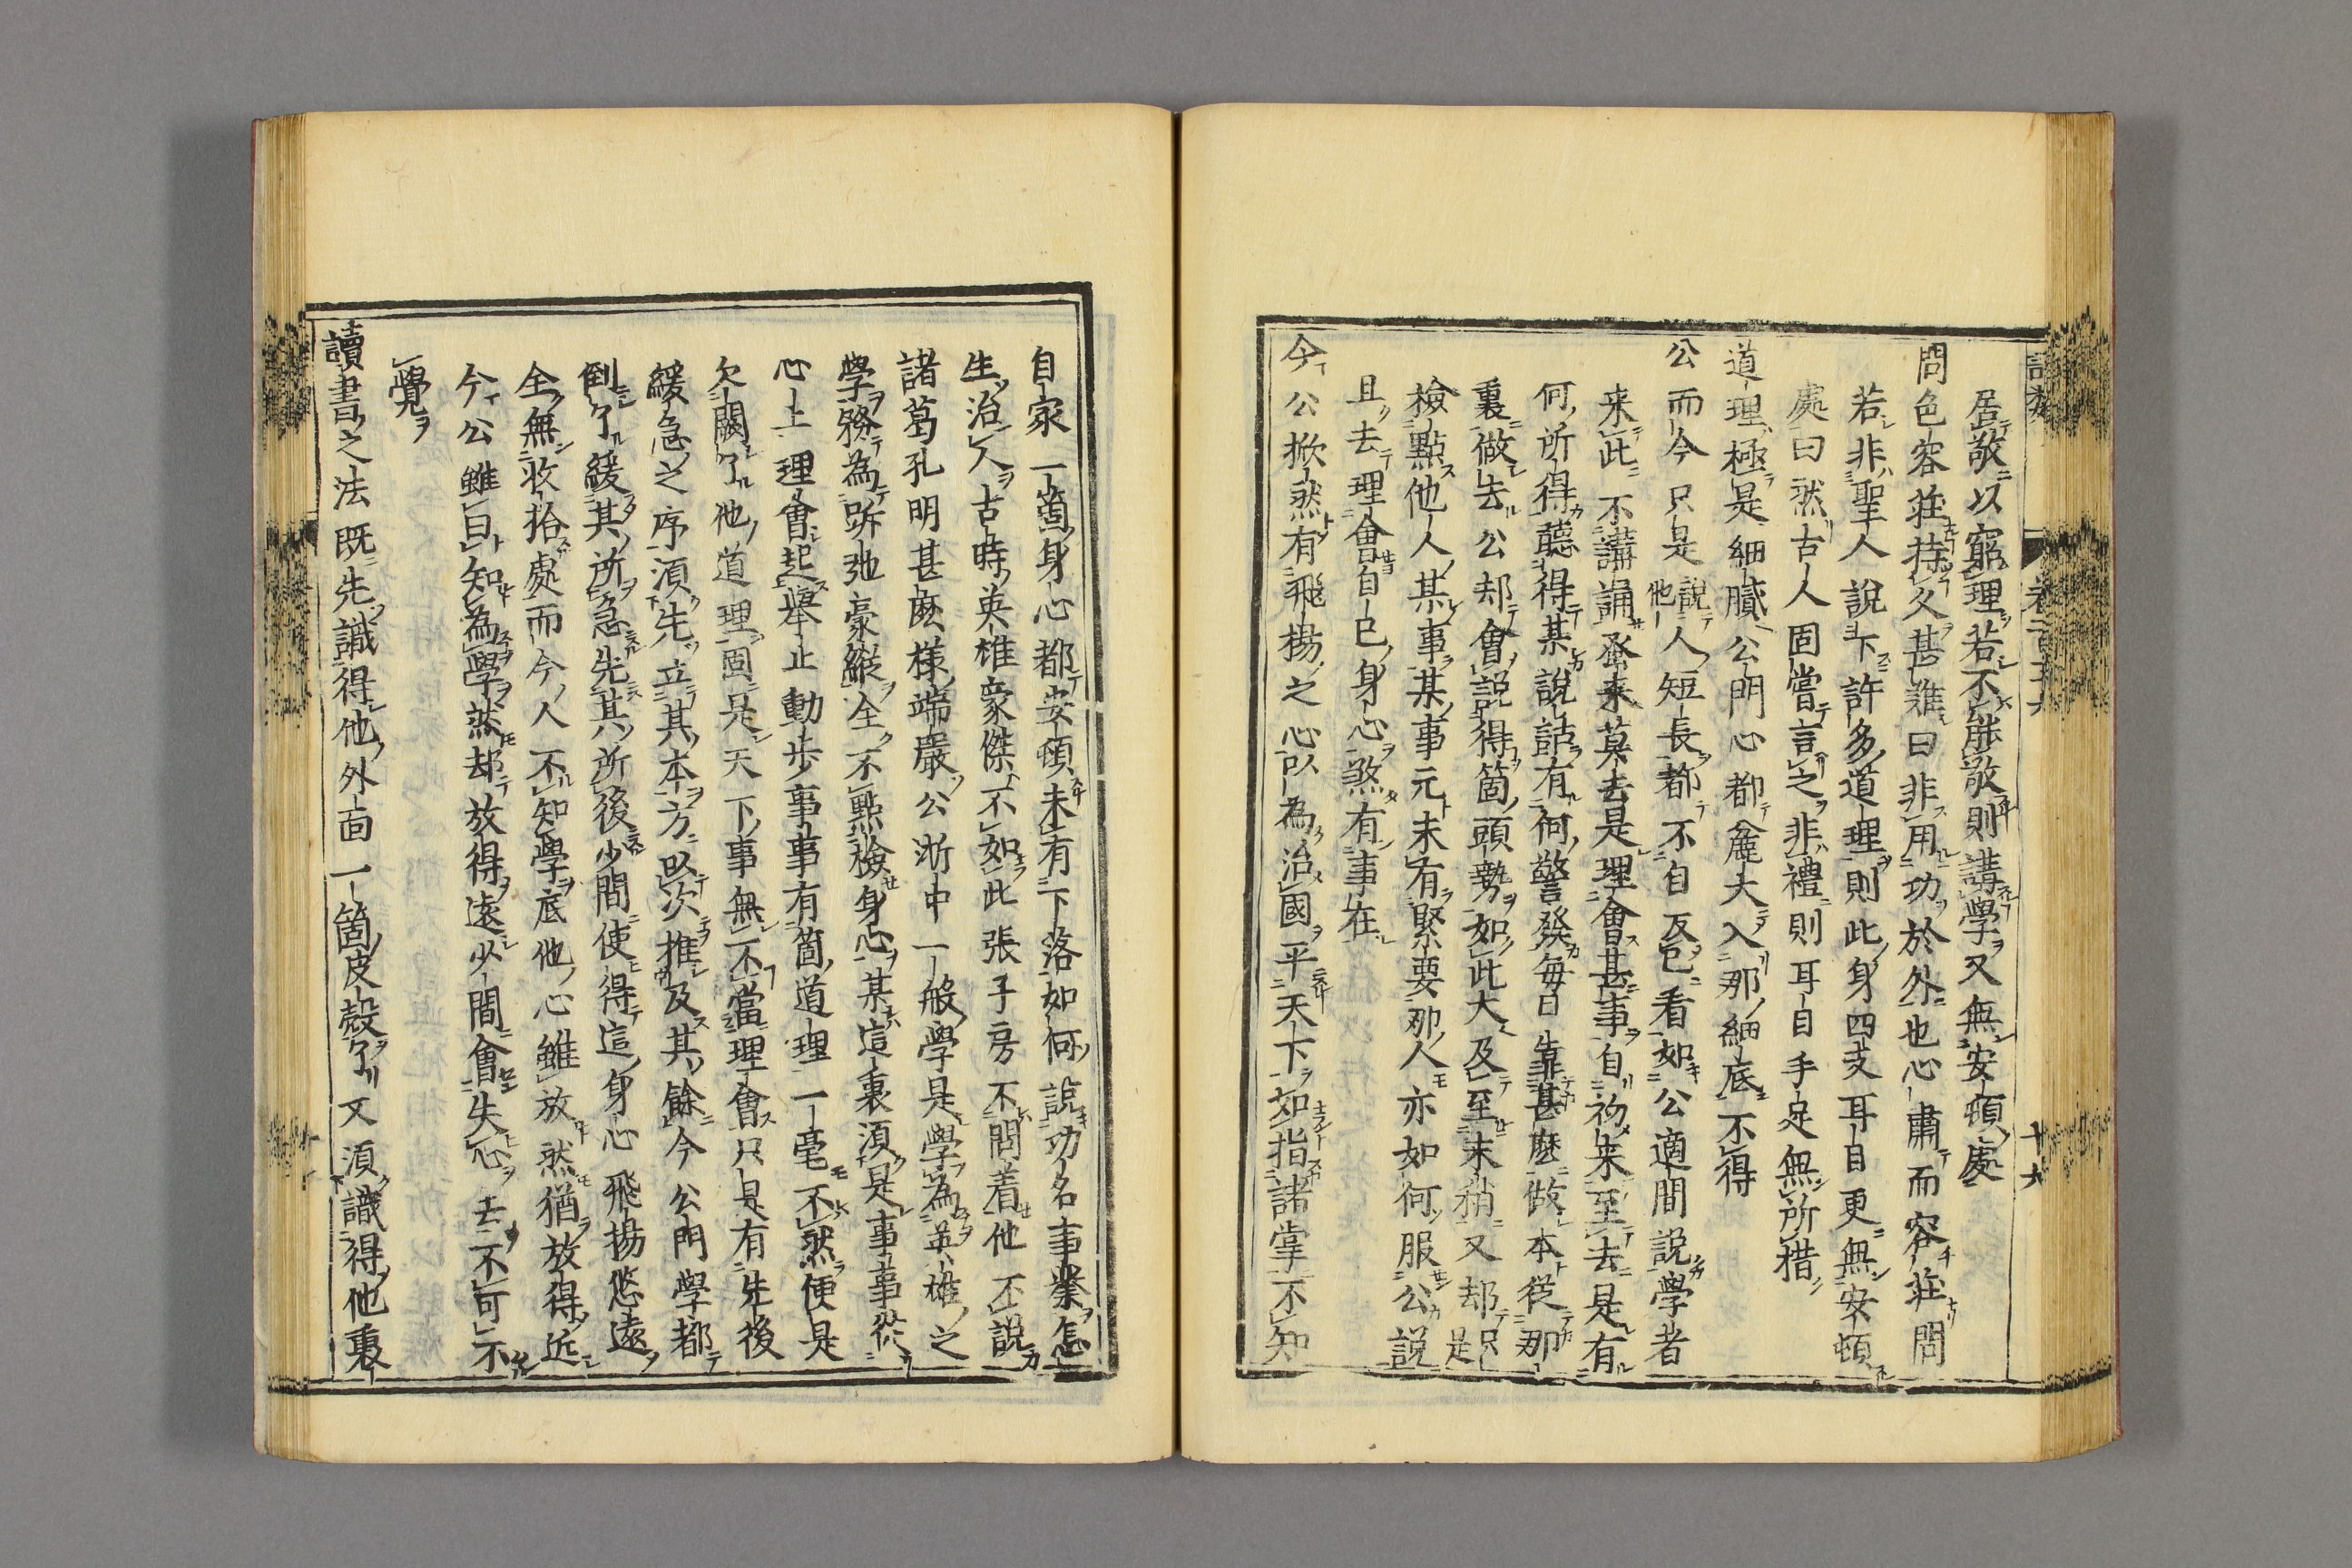 語類 卷百十六 十六
居敬以窮理若不能敬則講學又無安頓處
問色容莊持久甚難曰非用功於外也心肅而容莊問
若非聖人說下許多道理則此身四支耳目更無安頓
處曰然古人固嘗言之非禮則耳目手足無所措
道理極是細膩公門心都麄大入那細底不得
公而今只是說他人短長都不自反已看如公適間說學者
来此不講誦蚤来莫去是理會甚事自初来至去是有
何所得聽得某說話有何警發每日靠甚麽做本從那
裏做去公却會說得箇頭勢如此大及至末稍又却只是
檢點他人某事某事元未有緊要那人亦如何服公說
且去理會自已身心煞有事在
今公掀然有飛揚之心以為治國平天下如指諸掌不知
自家一箇身心都安頓未有下落如何說功名事業怎
生治人古時英雄豪傑不如此張子房不問着他不說
諸葛孔明甚麽樣端嚴公浙中一般學是學為英雄之
學務為跅弛豪縱全不點檢身心某這裏須是事事從
心上理會起舉止動步事事有箇道理一毫不然便是
欠闕了他道理固是天下事無不當理會只是有先後
緩急之序須先立其本方以次推及其餘今公門學都
倒了緩其所急先其所後少間使得這身心飛揚悠遠
全無收拾處而今人不知學底他心雖放然猶放得近
今公雖曰知為學然却放得遠少間會失心去不可不
覺
讀書之法既先識得他外面一箇皮殼了又須識得他裏